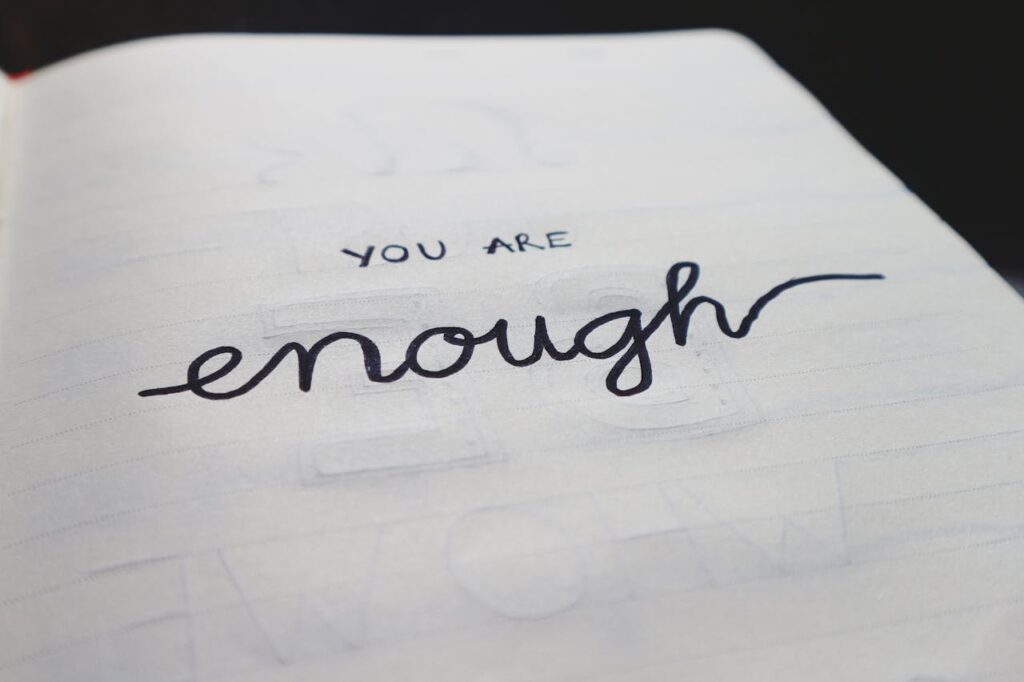 YOU ARE
enough